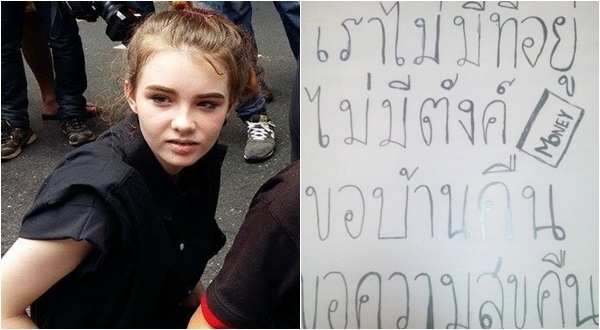 เราไม่มีที่อยู่
ไม่มีตังค์ MONEY
ขอบ้านคืน
ขอความสุขคืน